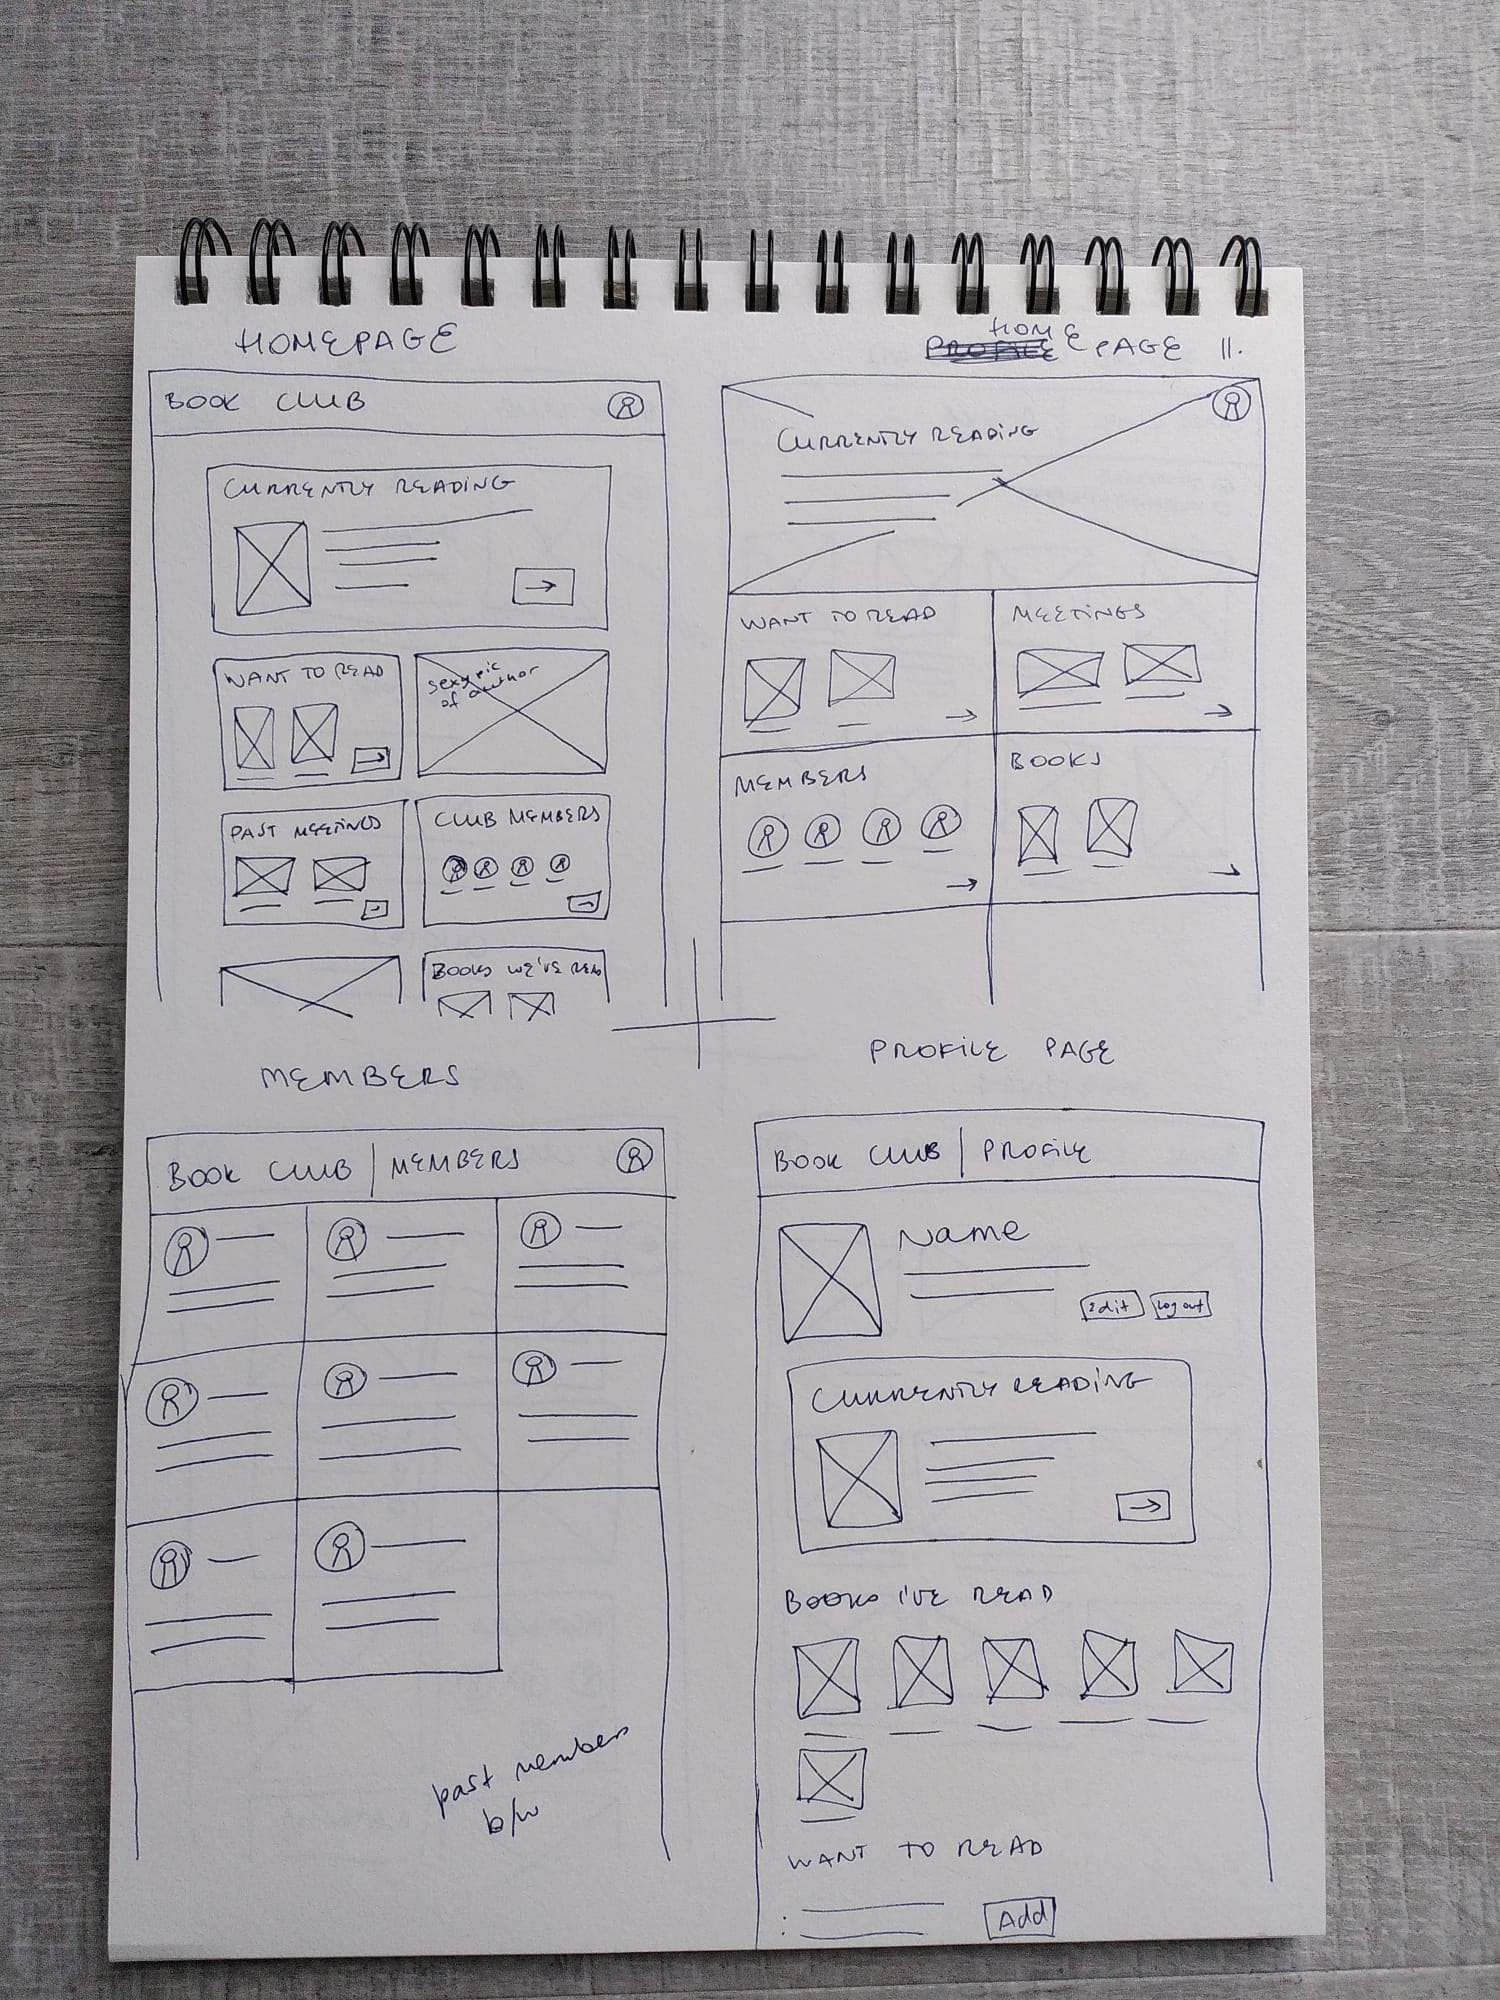 HOMEPAGE
BOOK CLUB
CURRENTLY READING
WANT TO READ
sexy pic
of author
PAST MEETINGS
CLUB MEMBERS
BOOKS WE'VE READ
HOME
PROFILE PAGE II.
CURRENTLY READING
WANT TO READ
MEETINGS
MEMBERS
BOOKS
MEMBERS
BOOK CLUB | MEMBERS
past members
b/w
PROFILE PAGE
BOOK CLUB | PROFILE
Name
Edit
Log out
CURRENTLY READING
BOOKS I'VE READ
WANT TO READ
Add